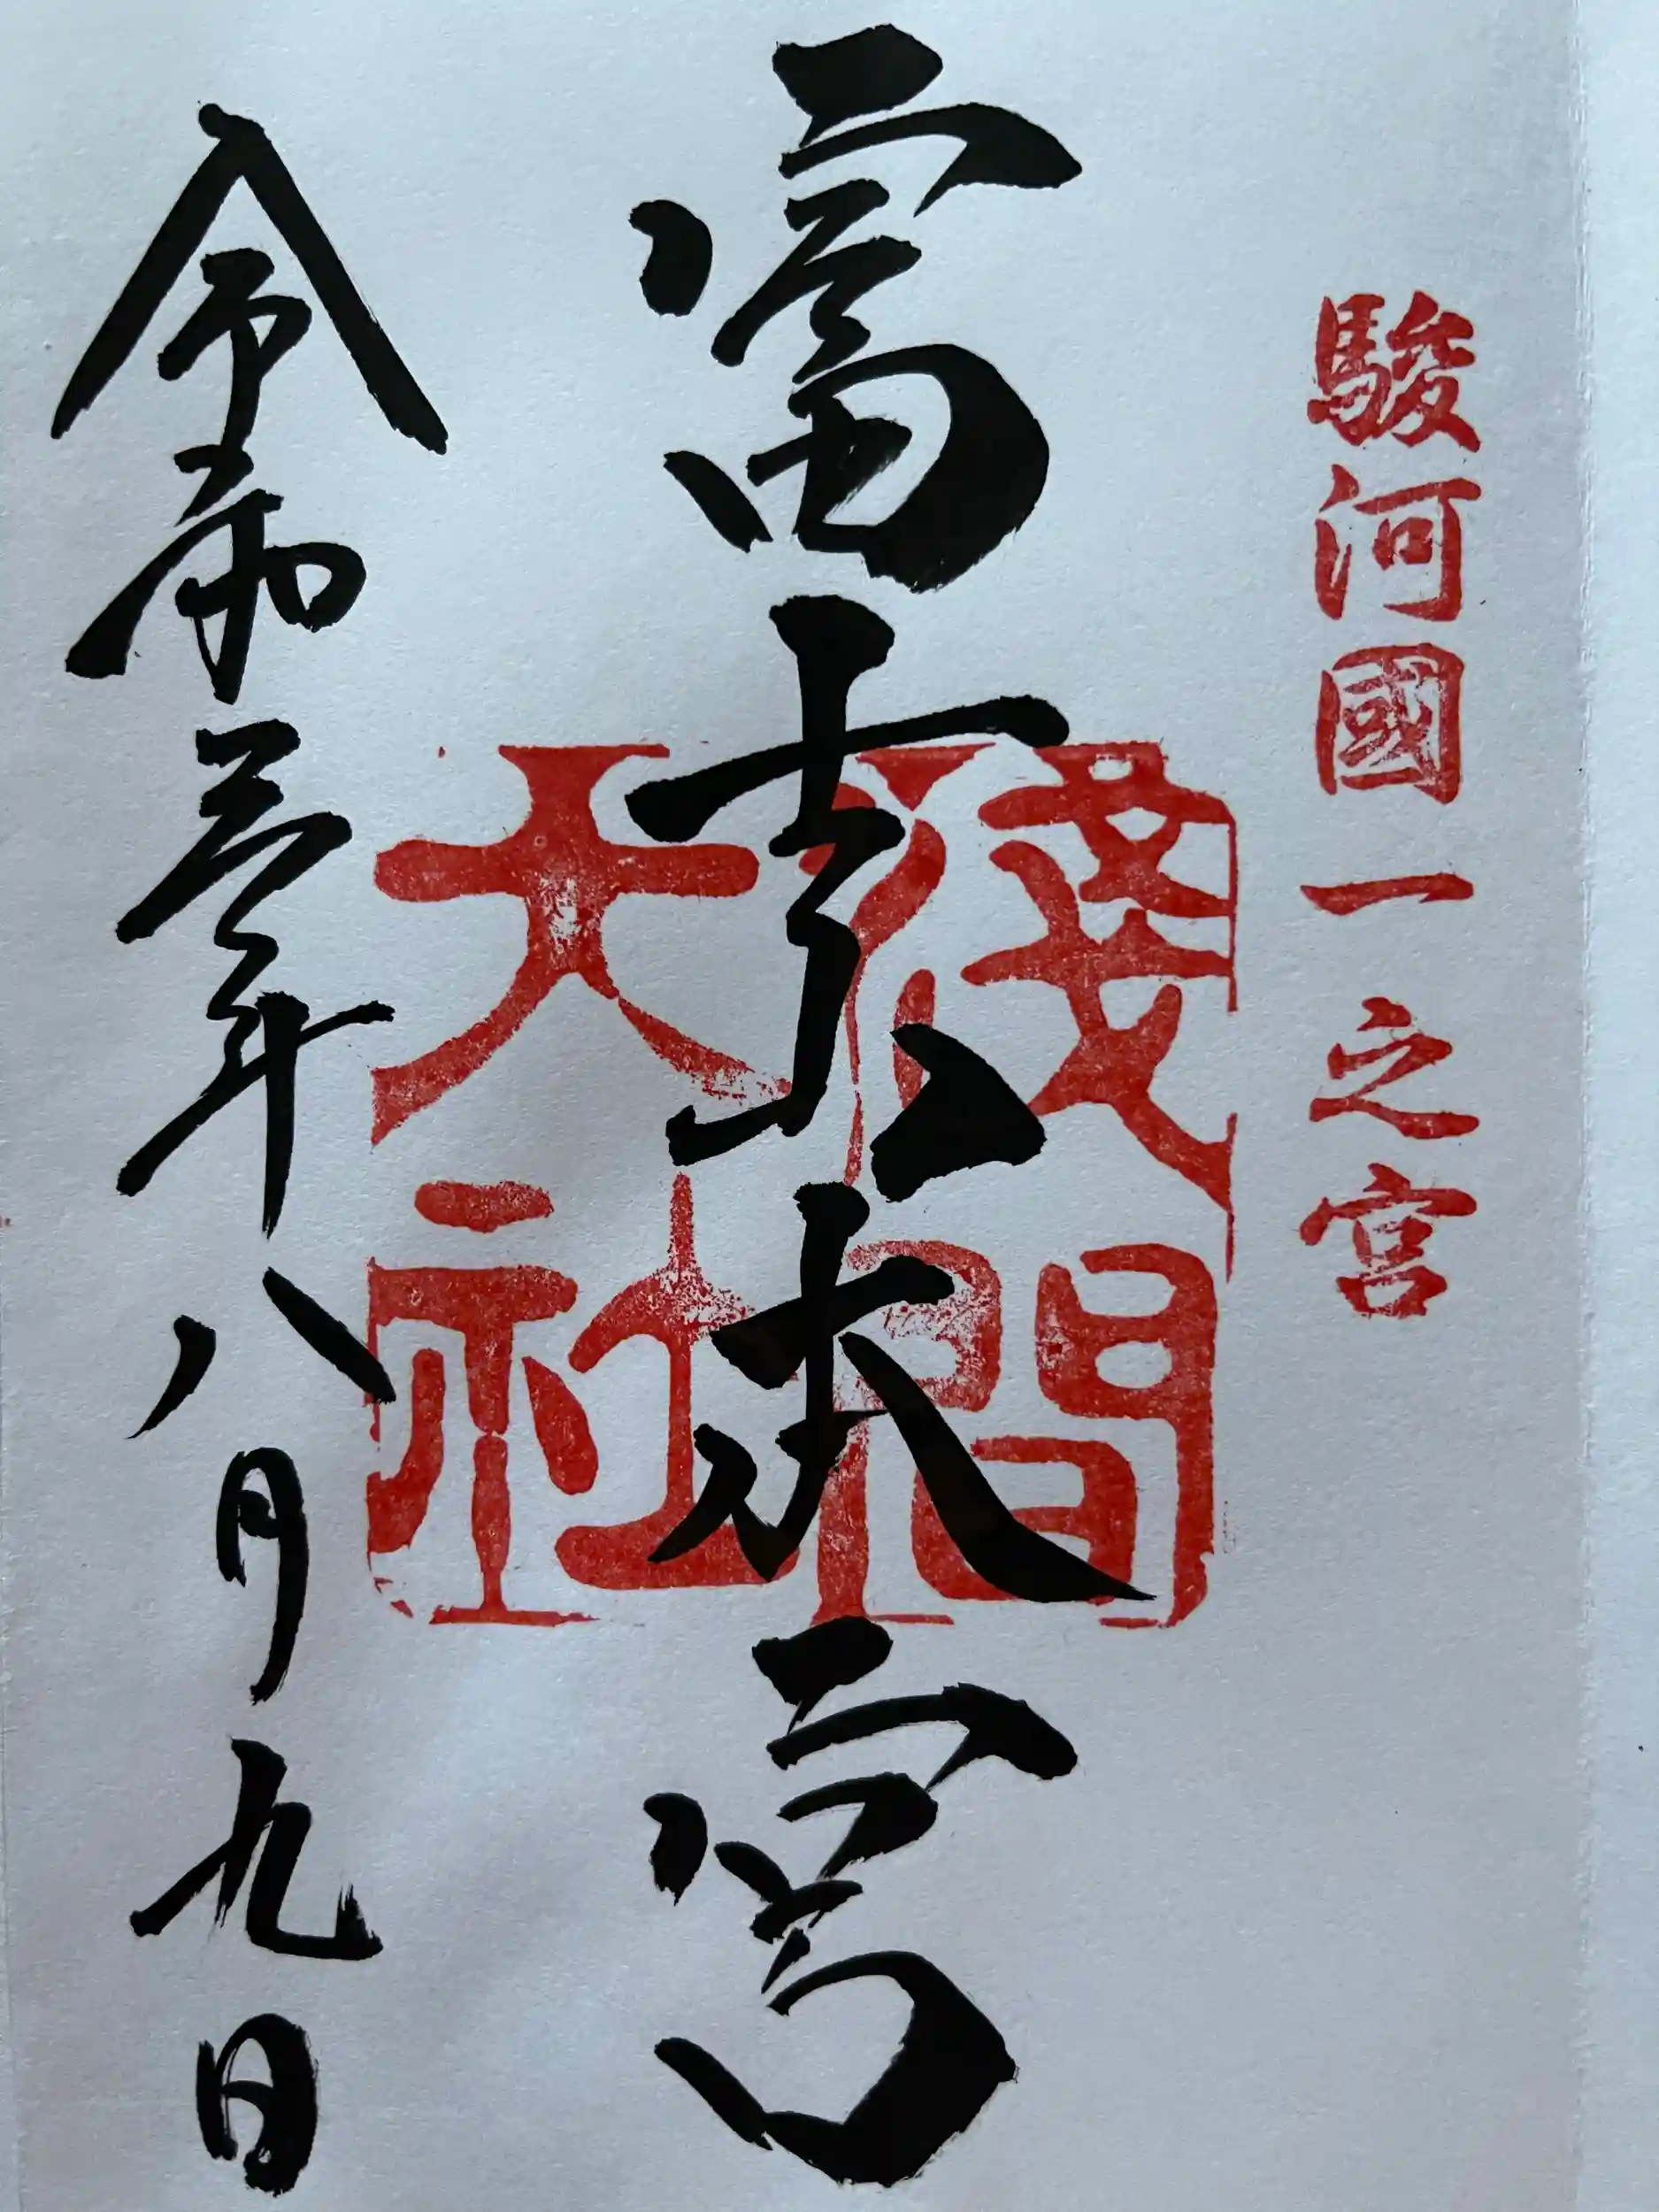 駿河國一之宮
富士山本宮
淺間大社
令和三年八月九日